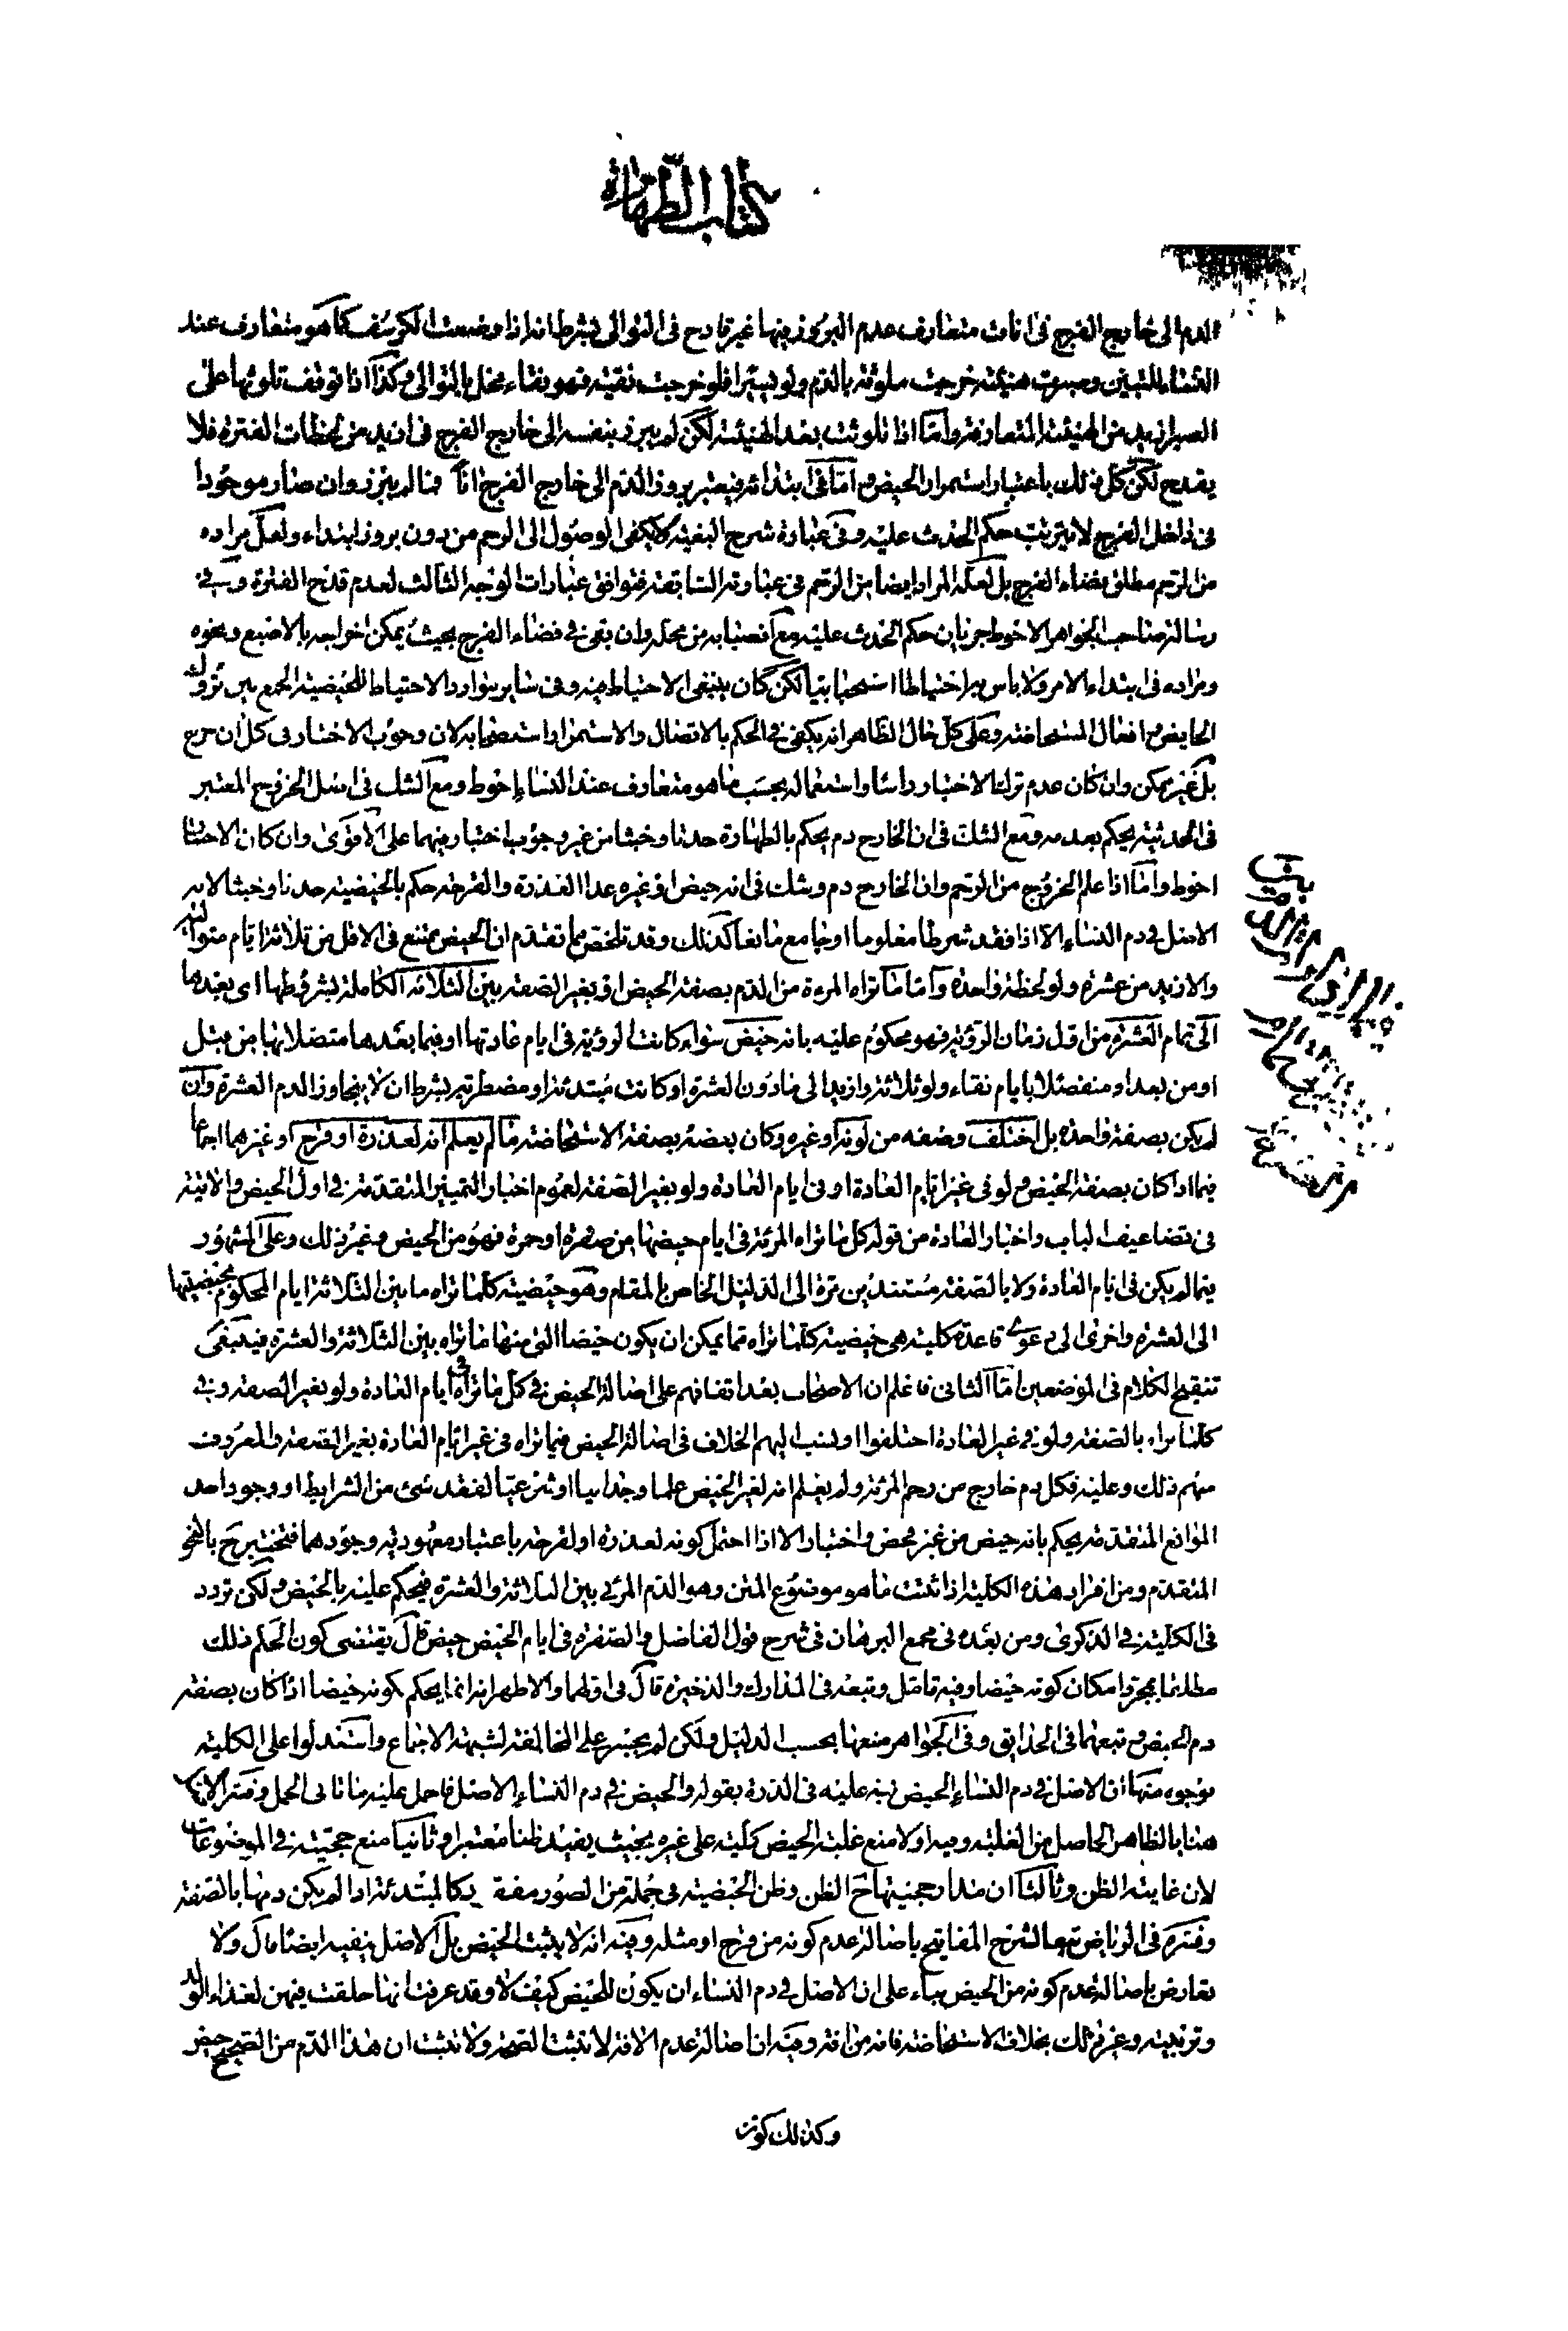 كتاب الطهارة
الدم الى خارج الفرج في اناث متعارف عدم البروز فيها غير قادح في التوالي بشرط انه اذا وضعت الكرسف كما هو متعارف عند
النساء للتبين وصبرت هنيئة خرجت ملوثة بالدم ولو يسيرا فلو خرجت نقية فهو نقاء مخل بالتوالي وكذا اذا توقف تلوثها على
الصبر ازيد من الهنيئة المتعارفة واما اذا تلوثت بعد الهنيئة لكن لم يبرز بنفسه الى خارج الفرج في ازيد من لحظات الفترة فلا
يقدح لكن كل ذلك باعتبار استمرار الحيض واما في ابتدائه فيعتبر بروز الدم الى خارج الفرج انا ما فما لم يبرز وان صار موجودا
في داخل الفرج لا يترتب حكم الحدث عليه وفي عبارة شرح البغية لا يكفي الوصول الى الرحم من دون بروز ابتداء ولعل مراده
من الرحم مطلق فضاء الفرج بل لعله المراد ايضا من الرحم في عباوته السابقة فتوافق عبارات الوجه الثالث لعدم قدح الفترة وفي
رسالة صاحب الجواهر الاحوط جريان حكم الحدث عليه مع انصبابه من محله وان بقى في فضاء الفرج بحيث يمكن اخراجه بالاصبع ونحوه
ومراده في ابتداء الامر ولا باس به احتياطا استحبابيا لكن كان ينبغي الاحتياط فيه وفي ساير موارد الاحتياط للحيضية الجمع بين تروك
الحايض وافعال المستحاضة وعلى كل حال الظاهر انه يكفي في الحكم بالاتصال والاستمرار استصحابه لان وجوب الاختبار في كل ان حرج
بل غير ممكن وان كان عدم ترك الاختبار راسا واستعماله بحسب ما هو متعارف عند النساء احوط ومع الشك في اصل الخروج المعتبر
في الحدثية يحكم بعدمه ومع الشك في ان الخارج دم يحكم بالطهارة حدثا وخبثا من غير وجوب اختبار فيهما على الاقوى وان كان الاختبار
احوط واما اذا علم الخروج من الرحم وان الخارج دم وشك في انه حيض او غيره عدا العذرة والقرحة حكم بالحيضية حدثا وخبثا لانه
الاصل في دم النساء الا اذا فقد شرطا معلوما او جامع مانعا كذلك وقد تلخص مما تقدم ان الحيض يمتنع في الاقل من ثلاثة ايام متوالية
والازيد من عشرة ولو لحظة واحدة واما ما تراه المرءة من الدم بصفة الحيض او بغير الصفة بين الثلاثة الكاملة بشروطها اى بعدها
الى تمام العشرة من اول زمان الرؤية فهو محكوم عليه بانه حيض سواء كانت الرؤية في ايام عادتها او فيما بعدها متصلا بها من قبل
او من بعد او منفصلا بايام نقاء ولو ثلاثة وازيد الى مادون العشرة او كانت مبتدئة او مضطربة بشرط ان لا يتجاوز الدم العشرة وان
لم يكن بصفة واحدة بل اختلف وصفه من لونه او غيره وكان بعضه بصفة الاستحاضة ما لم يعلم انه لعذرة او قرح او غيرهما اجماعا
فيما اذا كان بصفة الحيض ولو في غير ايام العادة او في ايام العادة ولو بغير الصفة لعموم اخبار التمييز المتقدمة في اول الحيض والاتية
في تضاعيف الباب واخبار العادة من قوله كل ما تراه المرئة في ايام حيضها من صفرة او حمرة فهو من الحيض وغير ذلك وعلى المشهور
فيما لم يكن في ايام العادة ولا بالصفة مستندين مرة الى الدليل الخاص بالمقام وهو حيضية كلما تراه ما بين الثلاثة ايام المحكوم بحيضيتها
الى العشرة واخرى الى دعوى قاعدة كلية هي حيضية كلما تراه مما يمكن ان يكون حيضا التي منها ما تراه بين الثلاثة والعشرة فينبغى
تنقيح الكلام في الموضعين اما الثاني فاعلم ان الاصحاب بعد اتفاقهم على اصالة الحيض في كل ما تراه في ايام العادة ولو بغير الصفة وفي
كلما تراه بالصفة ولو في غير العادة اختلفوا او نسب اليهم الخلاف في اصالة الحيض فيما تراه في غير ايام العادة بغير الصفة والمعروف
منهم ذلك وعليه فكل دم خارج من رحم المرئة ولم يعلم انه لغير الحيض علما وجدانيا او شرعيا لفقد شئ من الشرايط او وجود احد
الموانع المتقدمة يحكم بانه حيض من غير فحص واختبار الا اذا احتمل كونه لعذرة او لقرحة باعتبار معهودية وجودهما فتختبر ح بالنحو
المتقدم ومن افراد هذه الكلية اذا ثبتت ما هو موضوع المتن وهو الدم المرئي بين الثلاثة والعشرة فيحكم عليه بالحيض ولكن تردد
في الكلية في الذكرى ومن بعده في مجمع البرهان في شرح قول الفاضل والصفرة في ايام الحيض حيض قال يقتضي كون الحكم ذلك
مطلقا بمجرد امكان كونه حيضا وفيه تامل وتبعه في المدارك والذخيرة قال في اولهما والاظهر انه انما يحكم بكونه حيضا اذا كان بصفة
دم الحيض وتبعهما في الحدايق وفي الجواهر منعها بحسب الدليل ولكن لم يجسر على المخالفة لشبهة الاجماع واستدلوا على الكلية
بوجوه منها ان الاصل في دم النساء الحيض نبه عليه في الدرة بقوله والحيض في دم النساء الاصل فاحمل عليه ما تاتى الحمل وفسر الاصل
هنا بالظاهر الحاصل من الغلبة وفيه اولا منع غلبة الحيض كلية على غيره بحيث يفيد ظنا معتبرا وثانيا منع حجيته في الموضوعات
لان غايته الظن وثالثا ان مدار حجيتها ح الظن وظن الحيضية في جملة من الصور مفقود كالمبتدئة اذا لم يكن دمها بالصفة
وفسره في الرياض تبعا لشرح المفاتيح باصالة عدم كونه من قرح او مثله وفيه انه لا يثبت الحيض بل الاصل ينفيه ايضا قال ولا
يعارض باصالة عدم كونه من الحيض بناء على ان الاصل في دم النساء ان يكون للحيض كيف لا وقد عرفت انها خلقت فيهن لغذاء الولد
وتربيته وغير ذلك بخلاف الاستحاضة فانه من افة وفيه ان اصالة عدم الافة لا تثبت الصحة ولا تثبت ان هذا الدم من الصحيح حيض
وكذلك كونه